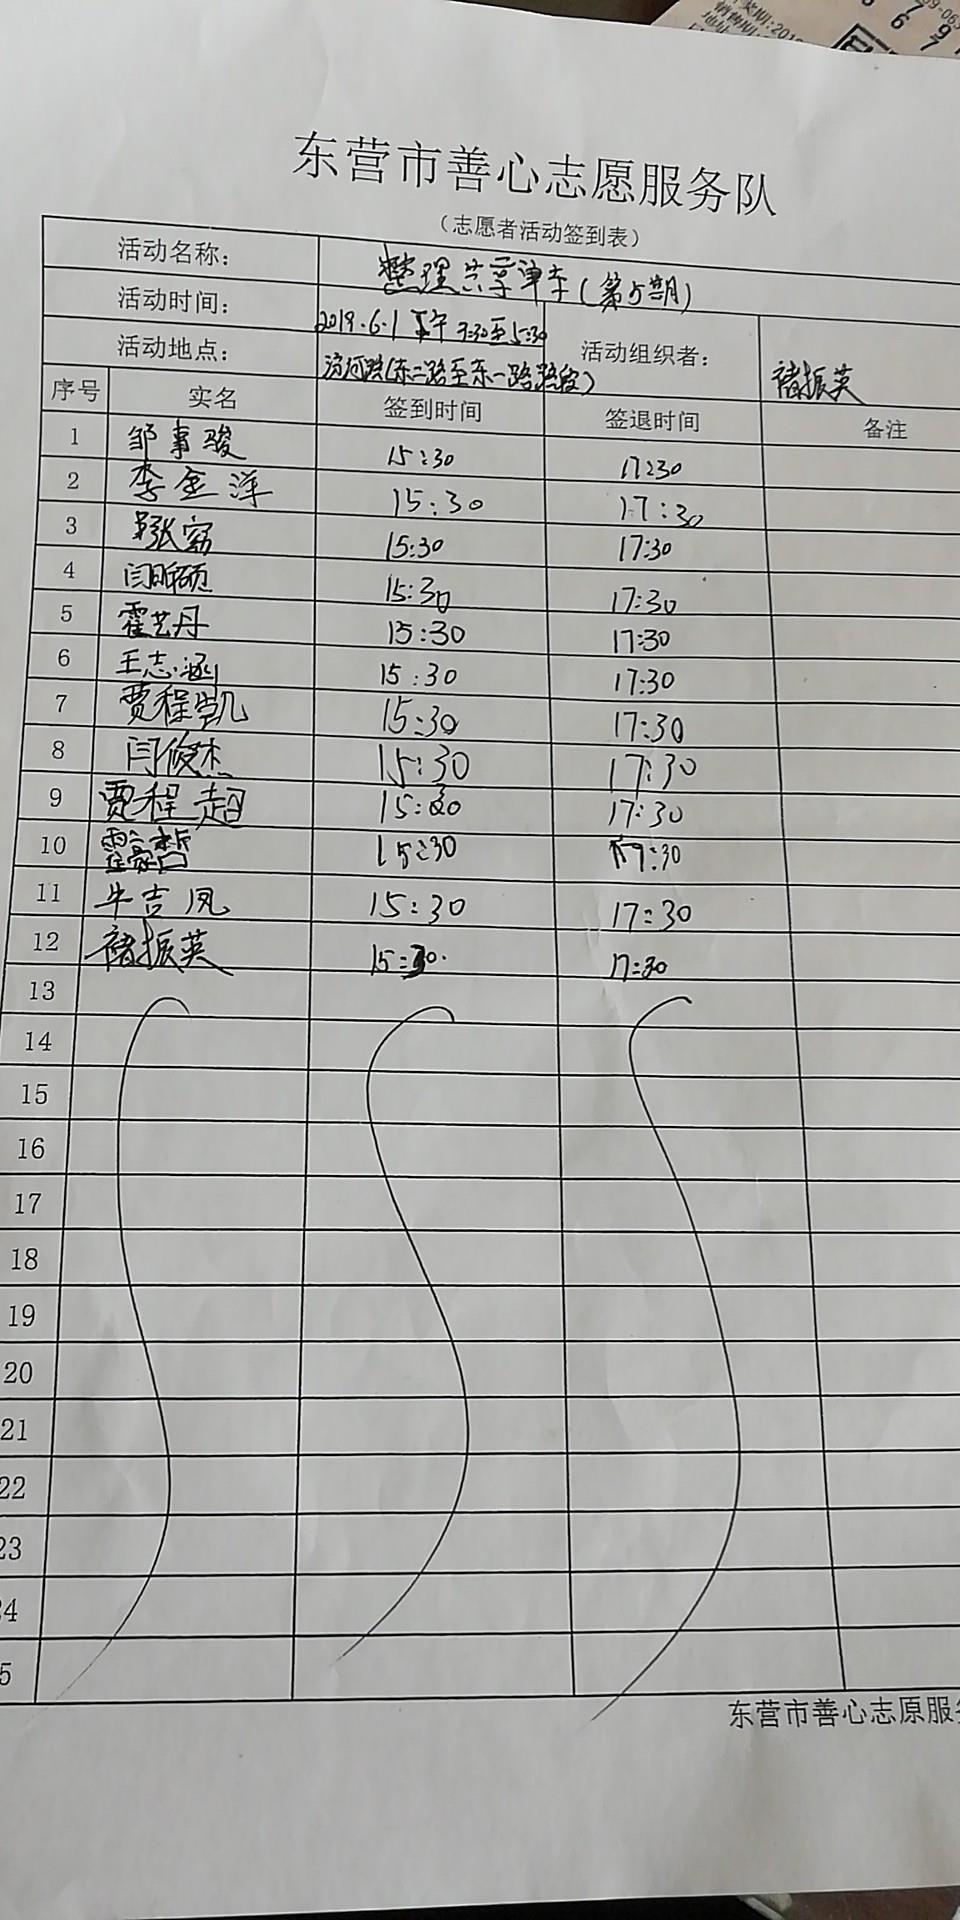 东营市善心志愿服务队
（志愿者活动签到表）
活动名称： 整理共享单车(第5期)
活动时间： 2019.6.1 下午 3:30至5:30 活动组织者： 褚振英
活动地点： (东二路至东一路路段)
序号 实名 签到时间 签退时间 备注
1 邹事骏 15:30 17:30
2 李金洋 15:30 17:30
3 15:30 17:30
4 闫昕硕 15:30 17:30
5 霍艺丹 15:30 17:30
6 王志涵 15:30 17:30
7 贾程凯 15:30 17:30
8 闫俊杰 15:30 17:30
9 贾程超 15:30 17:30
10 霍豪哲 15:30 17:30
11 牛吉凤 15:30 17:30
12 褚振英 15:30 17:30
13
14
15
16
17
18
19
20
21
22
23
4
5
东营市善心志原服